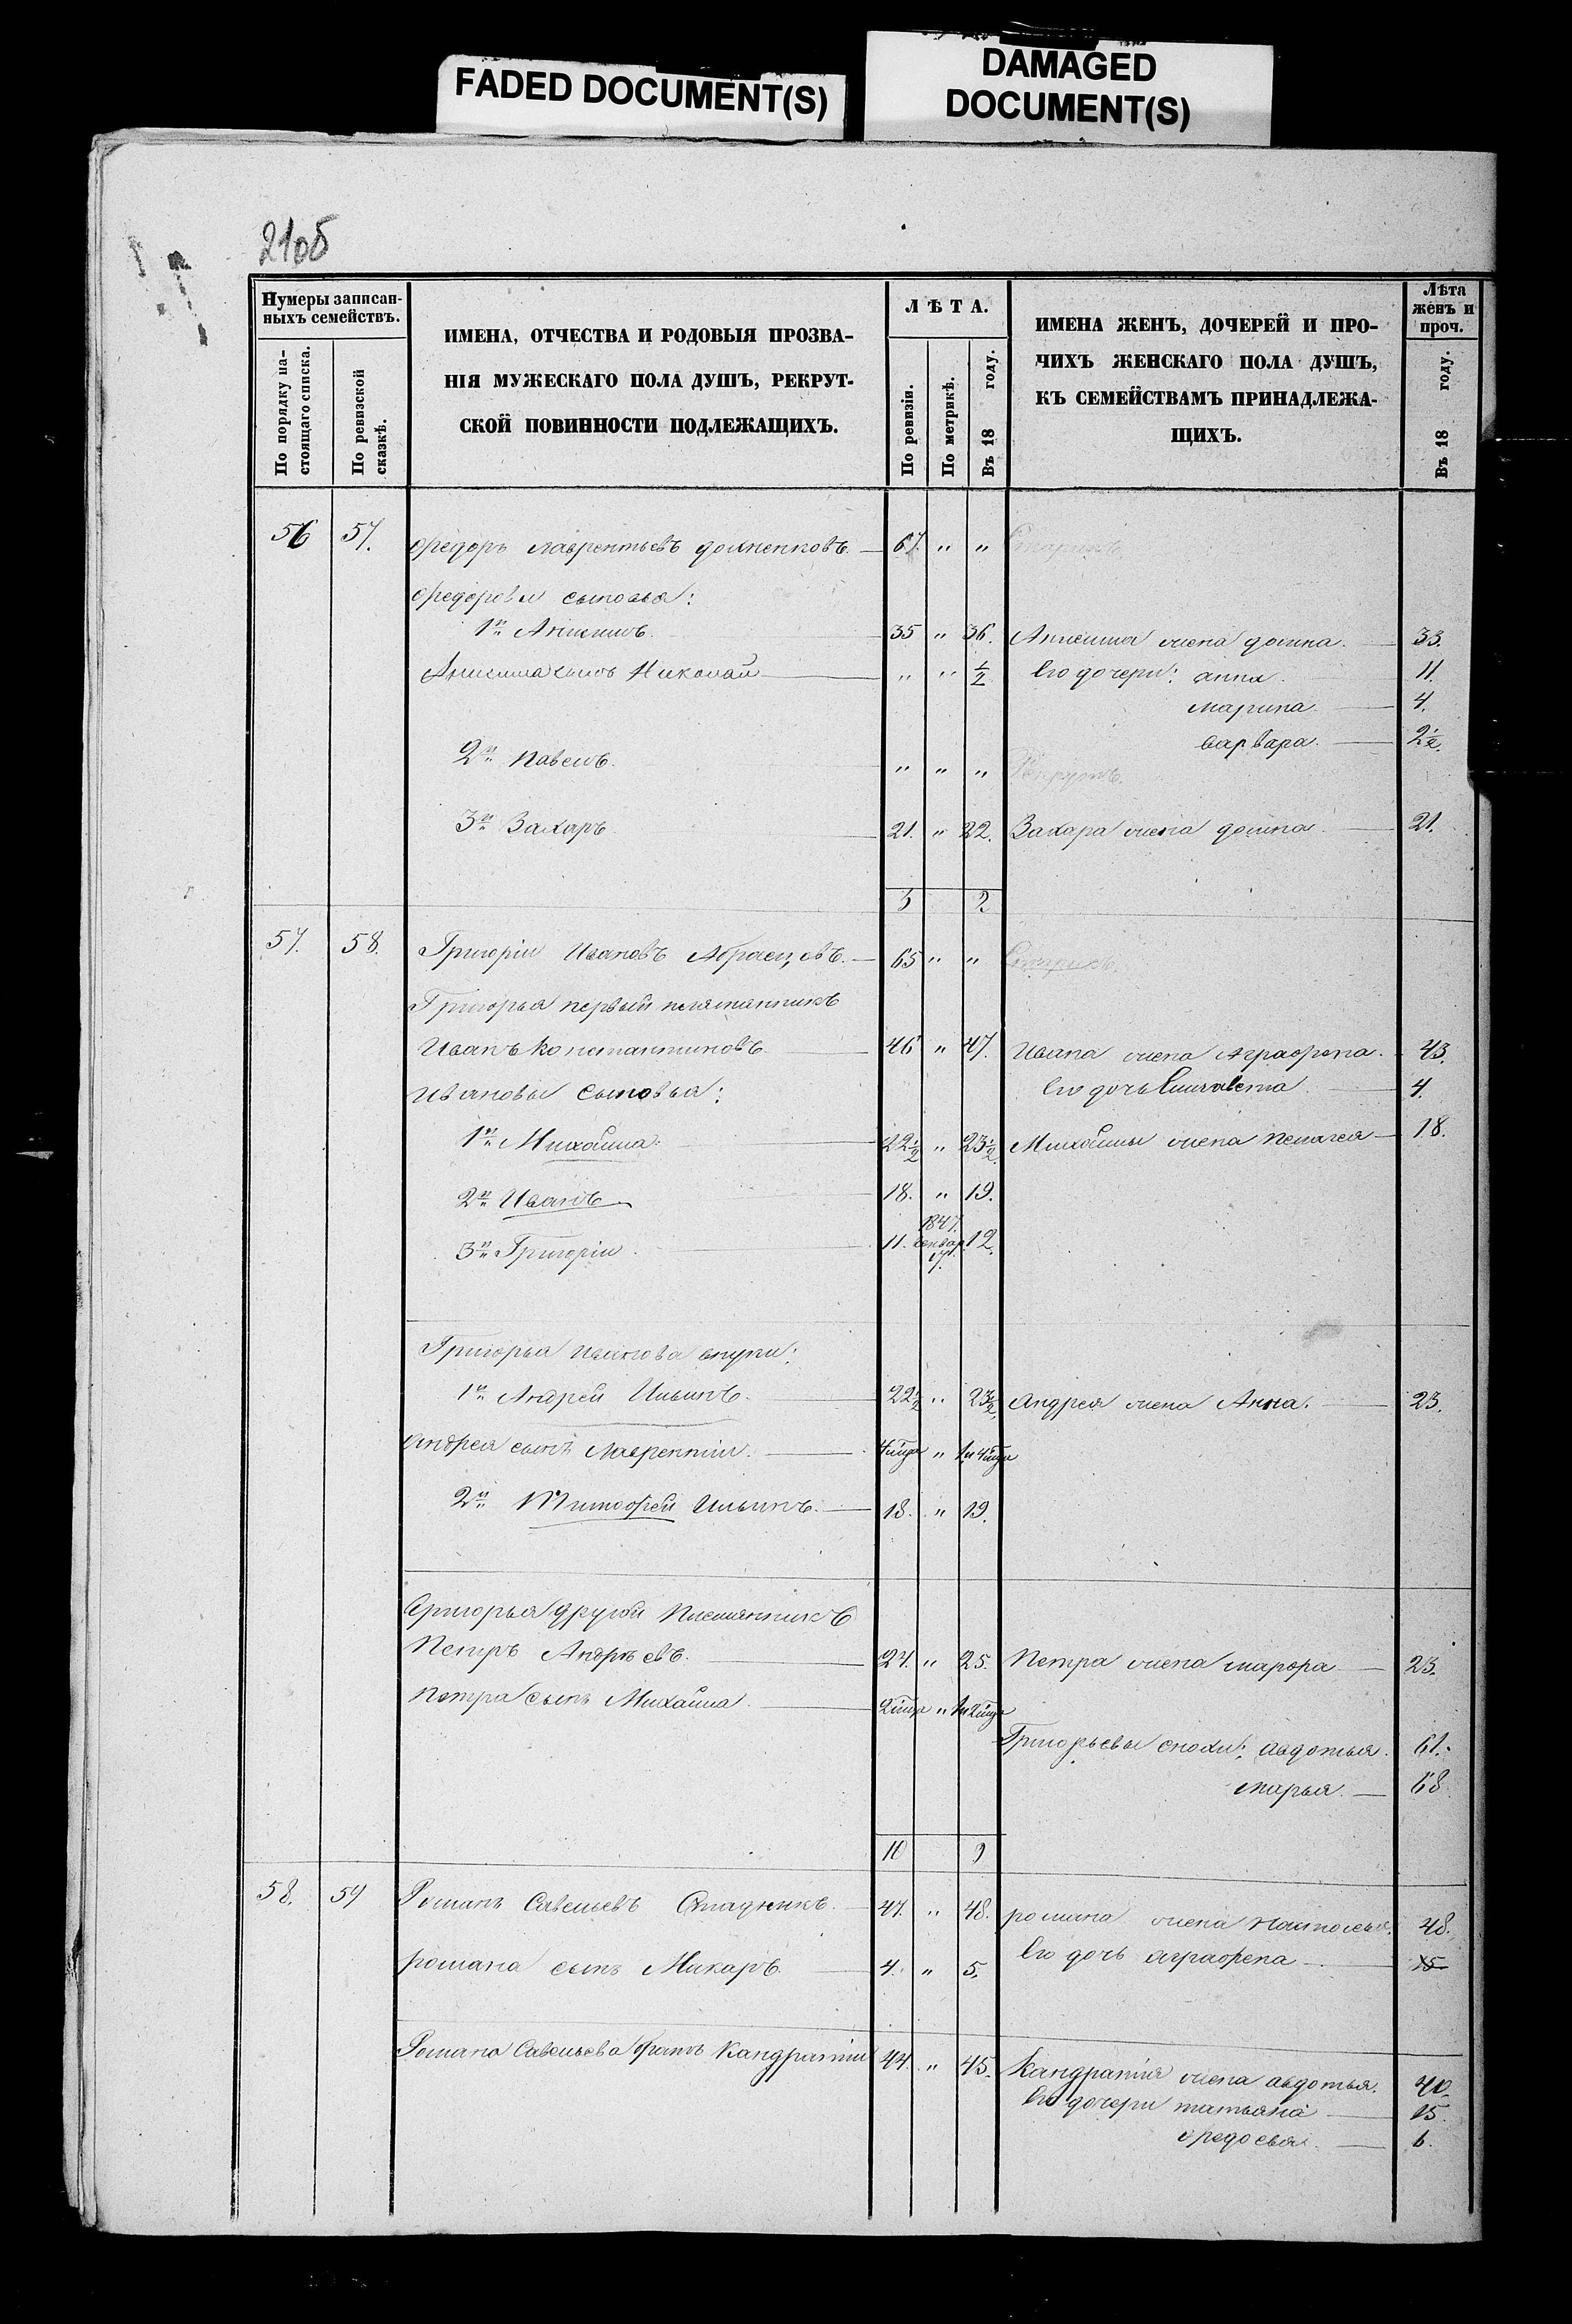 FADED DOCUMENT(S)
DAMAGED
DOCUMENT(S)
210б
Нумеры записан-
ныхъ семействъ.
По порядку на-
стоящаго списка.
По ревизской
сказкѣ.
ИМЕНА, ОТЧЕСТВА И РОДОВЫЯ ПРОЗВА-
НІЯ МУЖЕСКАГО ПОЛА ДУШЪ, РЕКРУТ-
СКОЙ ПОВИННОСТИ ПОДЛЕЖАЩИХЪ.
ЛѢТА.
По ревизіи.
По метрикѣ.
Въ 18 году.
ИМЕНА ЖЕНЪ, ДОЧЕРЕЙ И ПРО-
ЧИХЪ ЖЕНСКАГО ПОЛА ДУШЪ,
КЪ СЕМЕЙСТВАМЪ ПРИНАДЛЕЖА-
ЩИХЪ.
Лѣта
женъ и
проч.
Въ 18 году.
56 57. Федоръ Лаврентьевъ 67. " " Старикъ.
Федоровы сыновья:
1й Анисимъ. 35 " 36. Анисима жена домна. 33.
Анисима сынъ Николай " " 1/2 Его дочери: анна. 11.
марина 4.
варвара. 2 1/2.
2й Павелъ. " " " Рекрутъ.
3й Захаръ 21. " 22. Захара жена домна 21.
3 2
57. 58. Григорій Ивановъ Абразцовъ. 65 " " Старикъ.
Григорья первый племянникъ
Иванъ Константиновъ. 46 " 47. Ивана жена Аграфена. 43.
Ивановы сыновья: Его дочь Елизавета 4.
1й Михайла. 22 1/2 " 23 1/2. Михайлы жена пелагея 18.
2й Иванъ 18. " 19.
3й Григорій. 11. 1847. Январ. 17. 12.
Григорья Иванова внуки:
1й Андрей Ильинъ. 22 1/2 " 23 1/2. Андрея жена Анна. 23.
Андрея сынъ Лаврентій. "
2й Тимофей Ильинъ. 18. " 19.
Григорья другой племянникъ
Петръ Андрѣевъ. 24. " 25. Петра жена марфа 23.
Петра сынъ Михайла "
Григорьевы снохи: авдотья. 61.
марья. 68
10 9
58. 59 Романъ Савельевъ 47. " 48. романа жена 48.
романа сынъ Макаръ. 4. " 5. Его дочь аграфена 15
Романа Савельева братъ Кандратій 44. " 45. Кандратія жена авдотья. 40.
Его дочери татьяна 15.
федосья. 6.